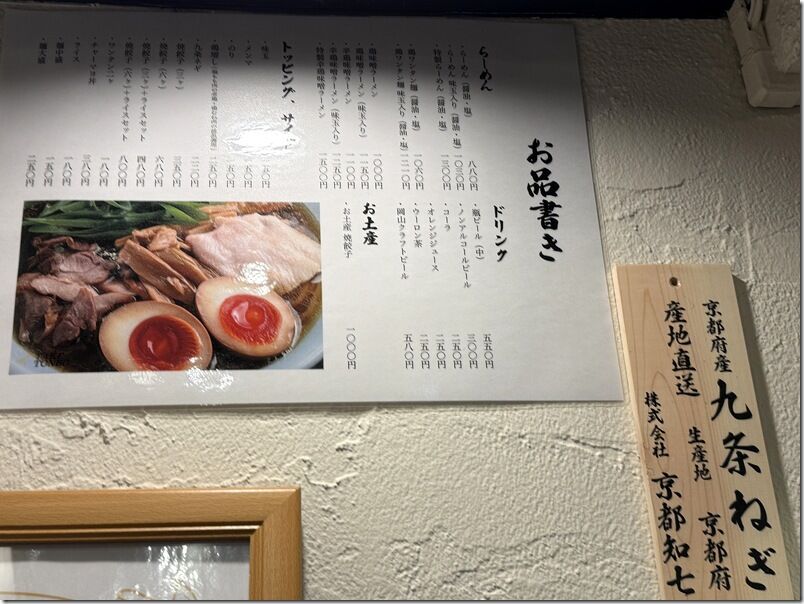 お品書き
らーめん
・らーめん（醤油・塩） 八八〇円
・らーめん 味玉入り（醤油・塩） 一〇三〇円
・特製らーめん（醤油・塩） 一三〇〇円
・鶏ワンタン麺（醤油・塩） 一〇六〇円
・鶏ワンタン麺 味玉入り（醤油・塩） 一二一〇円
・鶏味噌ラーメン 一〇〇〇円
・鶏味噌ラーメン（味玉入り） 一一五〇円
・辛鶏味噌ラーメン 一一〇〇円
・辛鶏味噌ラーメン（味玉入り）
・特製辛鶏味噌ラーメン 一五〇〇円
トッピング、サイ
・味玉
・メンマ
・のり
・鶏増し 二五〇円
・九条ネギ
・焼餃子（三ヶ） 三五〇円
・焼餃子（六ヶ） 六八〇円
・焼餃子（三ヶ）+ライスセット 四八〇円
・焼餃子（六ヶ）+ライスセット 八〇〇円
・ワンタン二ヶ 一八〇円
・チャーマヨ丼 三八〇円
・ライス 一八〇円
・麺中盛 一五〇円
・麺大盛 二五〇円
ドリンク
・瓶ビール（中） 五五〇円
・ノンアルコールビール 三〇〇円
・コーラ 二五〇円
・オレンジジュース 二五〇円
・ウーロン茶 二五〇円
・岡山クラフトビール 五八〇円
お土産
・お土産 焼餃子 一〇〇〇円
京都府産 九条ねぎ
産地直送 生産地 京都府
株式会社 京都知七